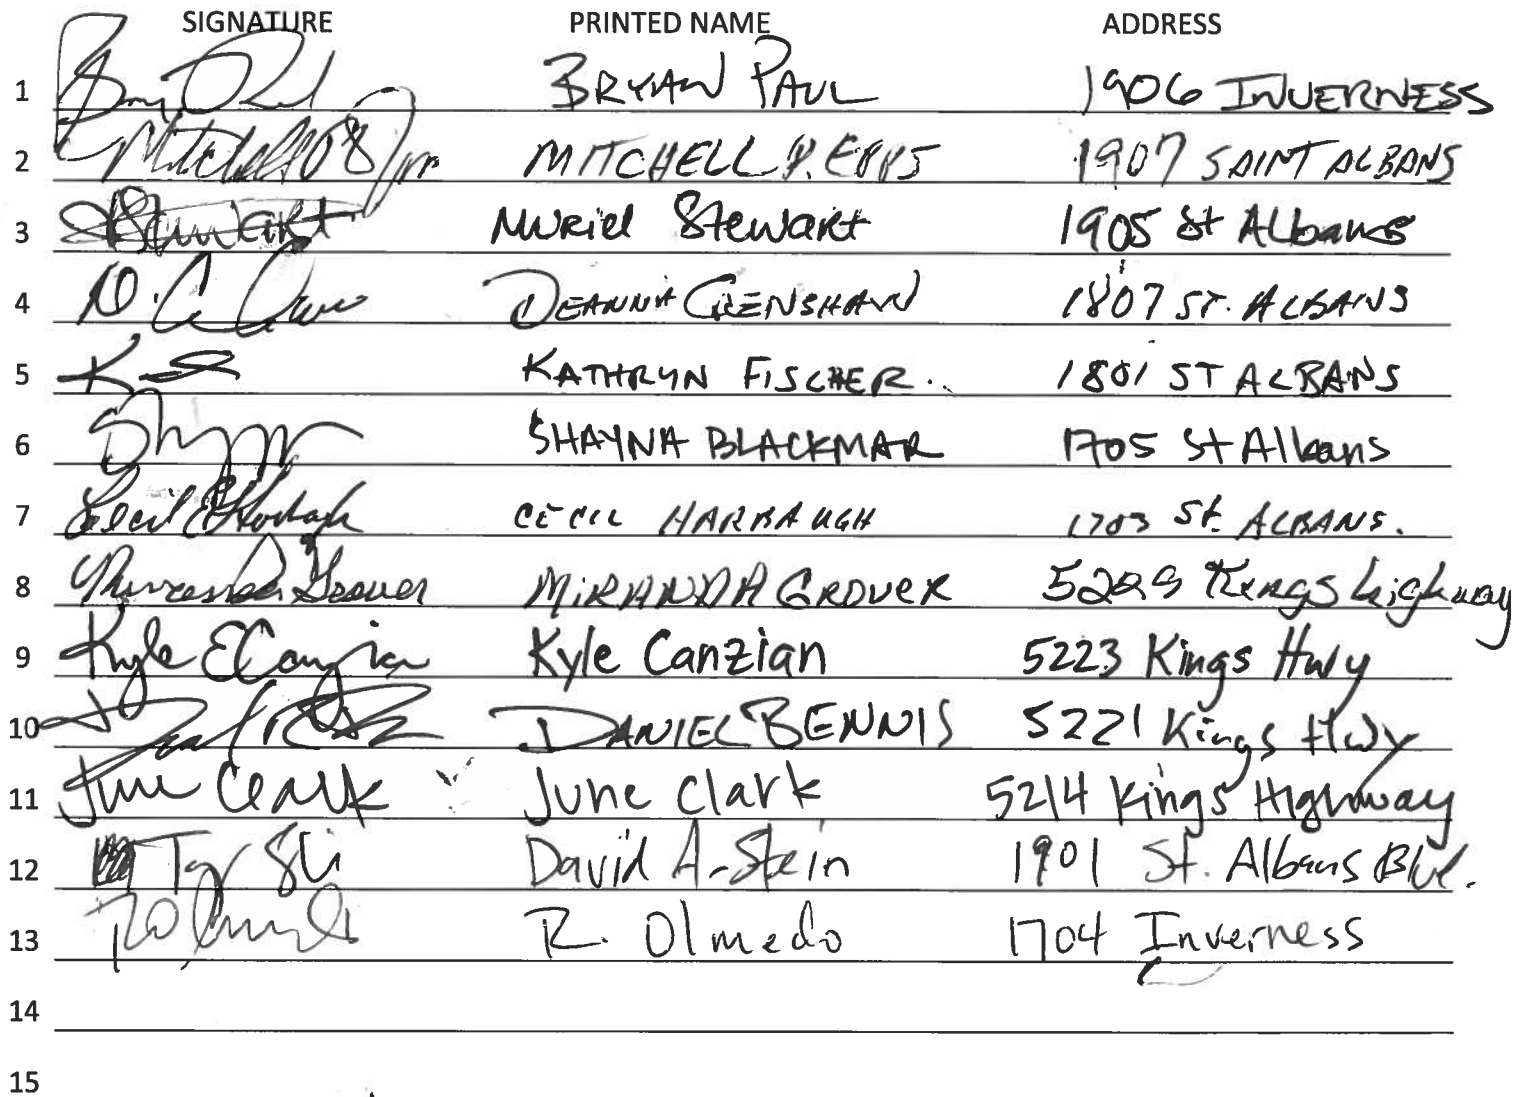 SIGNATURE PRINTED NAME ADDRESS
1 BRYAN PAUL 1906 INVERNESS
2 MITCHELL EPPS 1907 SAINT ALBANS
3 Stewart Muriel Stewart 1905 St Albans
4 DEANNA CRENSHAW 1807 ST. ALBANS
5 KATHRYN FISCHER. 1801 ST ALBANS
6 SHAYNA BLACKMAR 1705 St Albans
7 Cecil E Harbaugh CECIL HARBAUGH 1703 St. ALBANS.
8 Miranda Grover MIRANDA GROVER Kings highway
9 Kyle E Canzian Kyle Canzian 5223 Kings Hwy
10 DANIEL BENNIS 5221 Kings Hwy
11 June Clark June Clark 5214 Kings Highway
12 David A. Stein 1901 St. Albans Blvd.
13 R. Olmedo 1704 Inverness
14
15